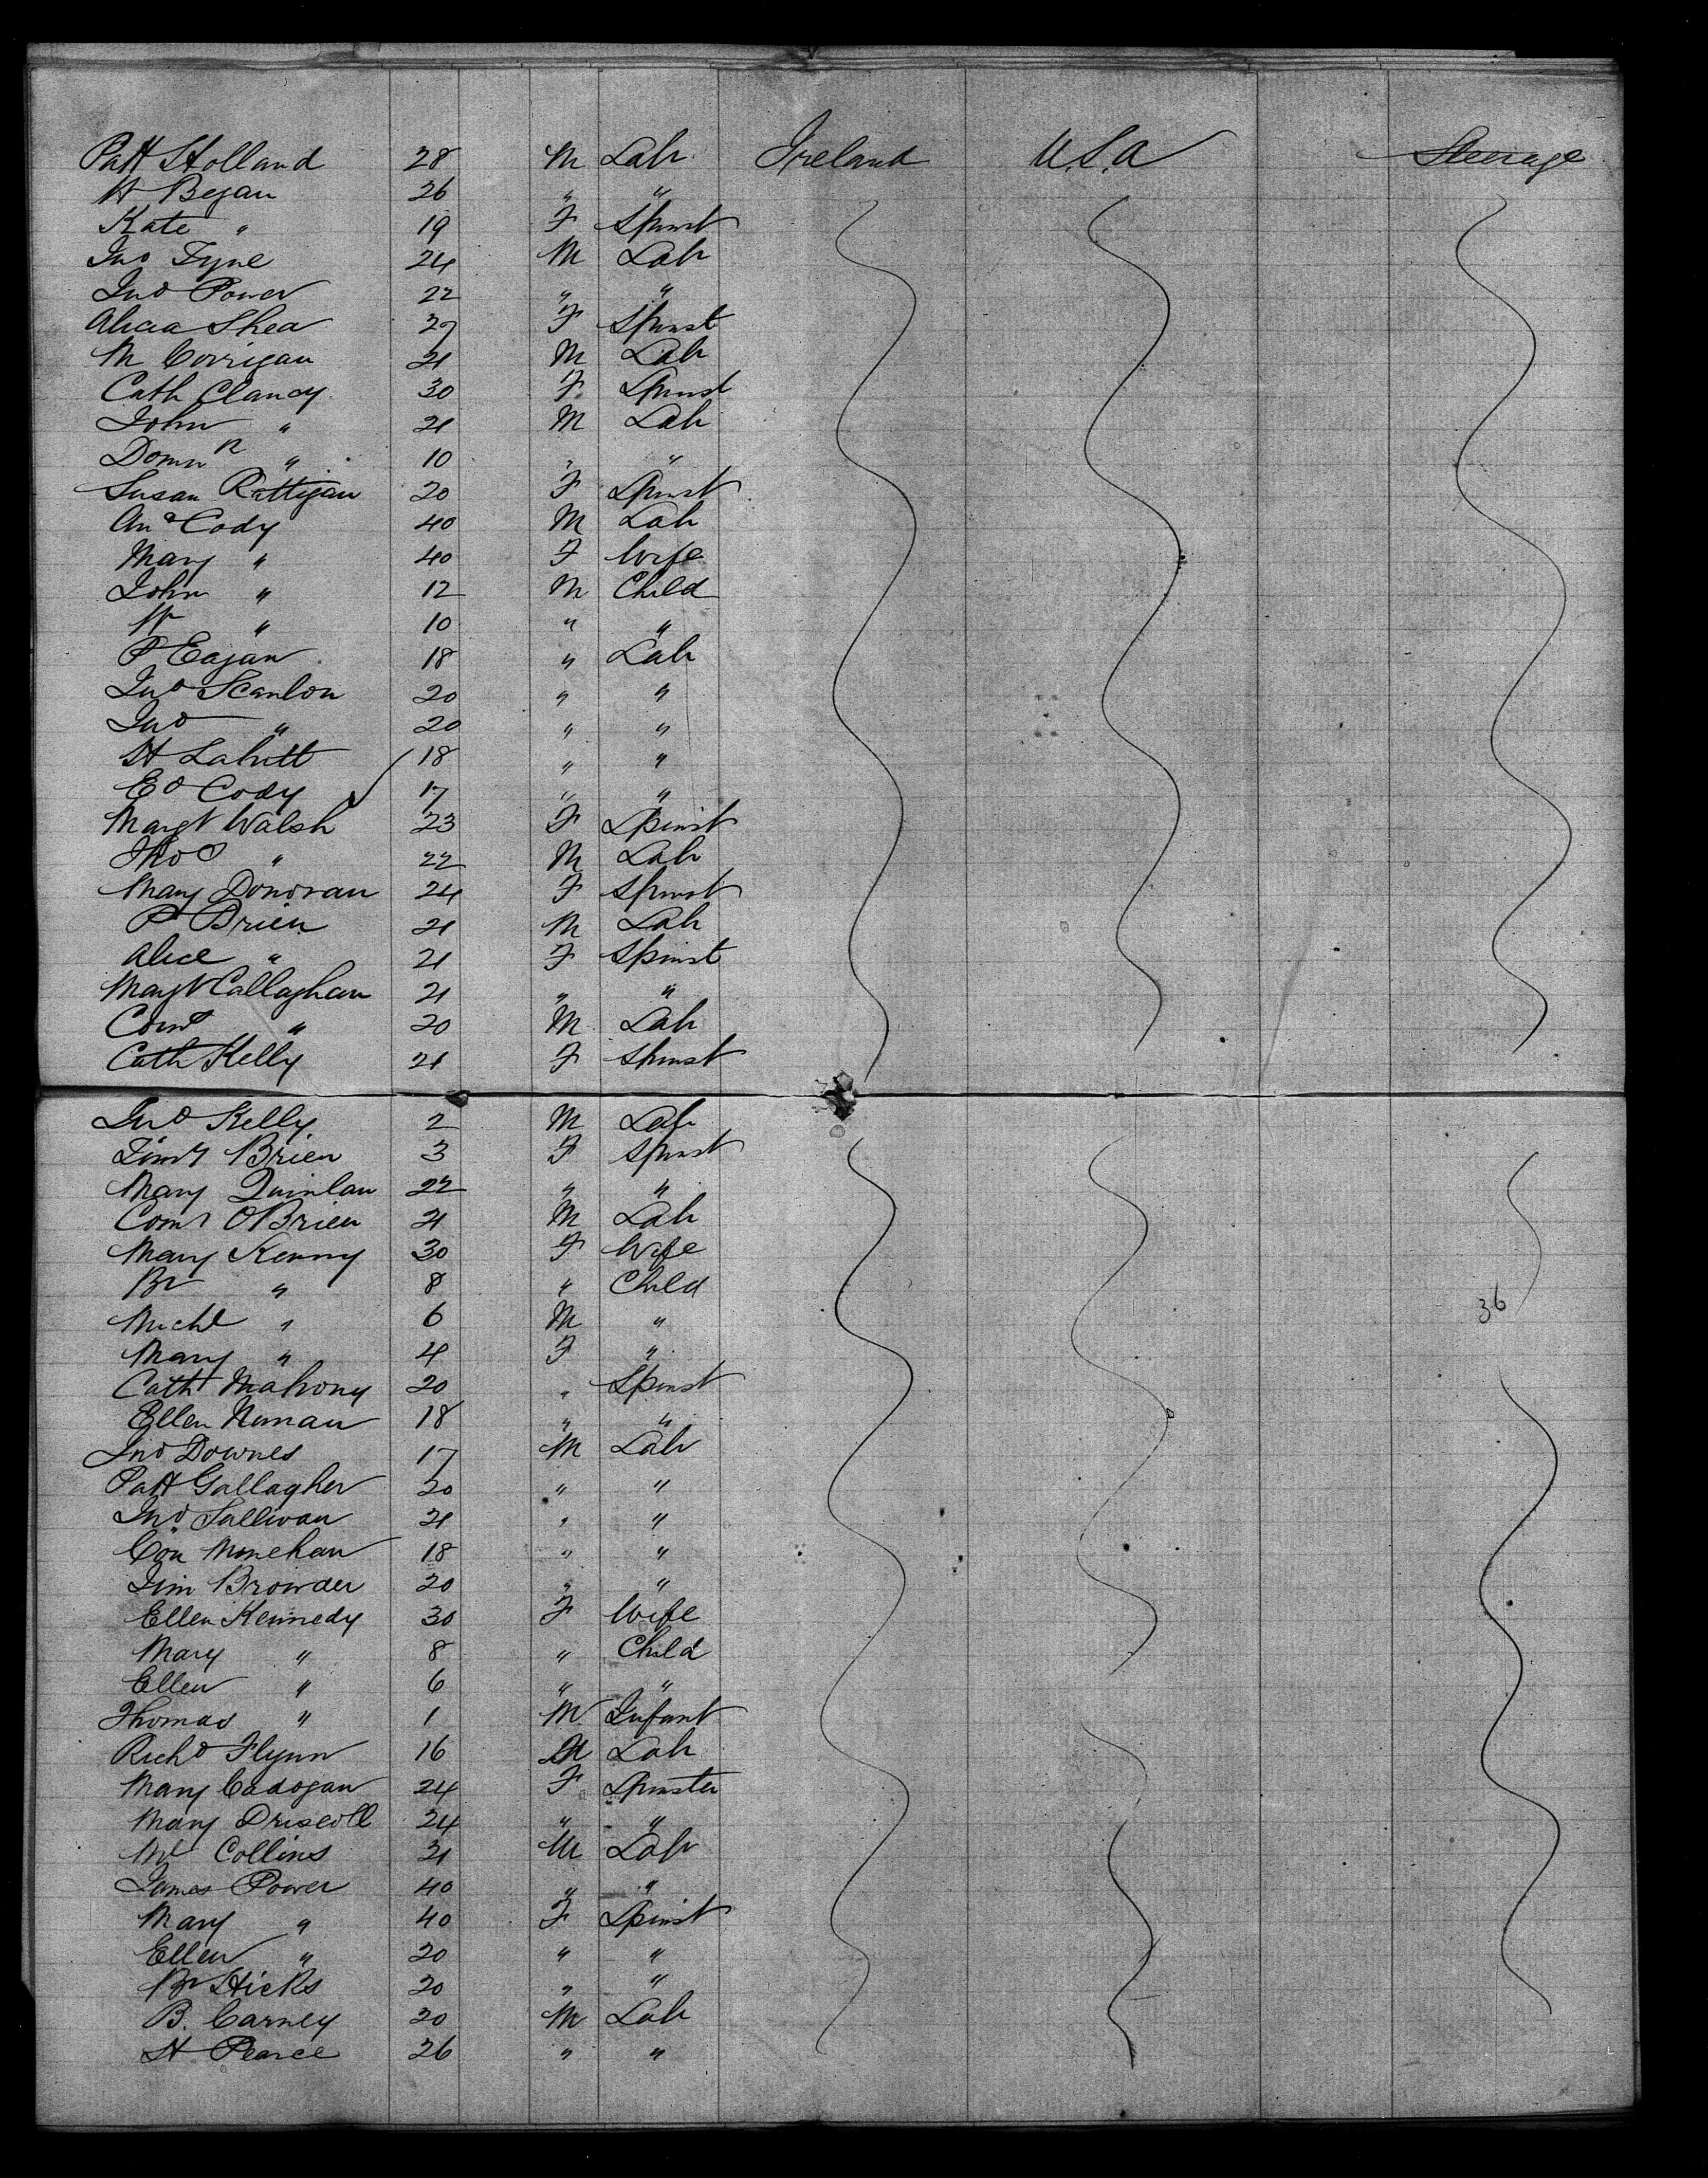 Patt Holland 28 M Lab Ireland U.S.A Steerage
H Began 26 " "
Kate " 19 F Spinst
Jno Fyne 24 M Lab
Jno Power 22 " "
Alicia Shea 27 F Spinst
M Corrigan 21 M Lab
Cath Clancy 30 F Spinst
John " 21 M Lab
" 10 " "
Susan Rattigan 20 F Spinst
Cody 40 M Lab
Mary " 40 F Wife
John " 12 M Child
" 10 " "
P Eagan 18 " Lab
Jno Scanlon 20 " "
Jno " 20 " "
H Lahitt 18 " "
Ed Cody 17 " "
Margt Walsh 23 F Spinst
Thos " 22 M Lab
Mary Donovan 24 F Spinst
P Brien 21 M Lab
Alice " 21 F Spinst
Margt Callaghan 21 " "
" 20 M Lab
Cath Kelly 21 F Spinst
Jno Kelly 2 M Lab
Brien 3 F Spinst
Mary Quinlan 22 " "
O Brien 21 M Lab
Mary Kenny 30 F Wife
Br " 8 " Child
Michl " 6 M "
36
Mary " 4 F "
Cath Mahony 20 " Spinst
Ellen Nunan 18 " "
Jno Downes 17 M Lab
Patt Gallagher 20 " "
Jno Sullivan 21 " "
Con Minehan 18 " "
Jim Browder 20 " "
Ellen Kennedy 30 F Wife
Mary " 8 " Child
Ellen " 6 " "
Thomas " 1 M Infant
Richd Flynn 16 M Lab
Mary Cadogan 24 F Spinster
Mary Driscoll 24 " "
Ml Collins 21 M Lab
James Power 40 " "
Mary " 40 F Spinst
Ellen " 20 " "
Br Hicks 20 " "
B. Carney 20 M Lab
H Pearce 26 " "